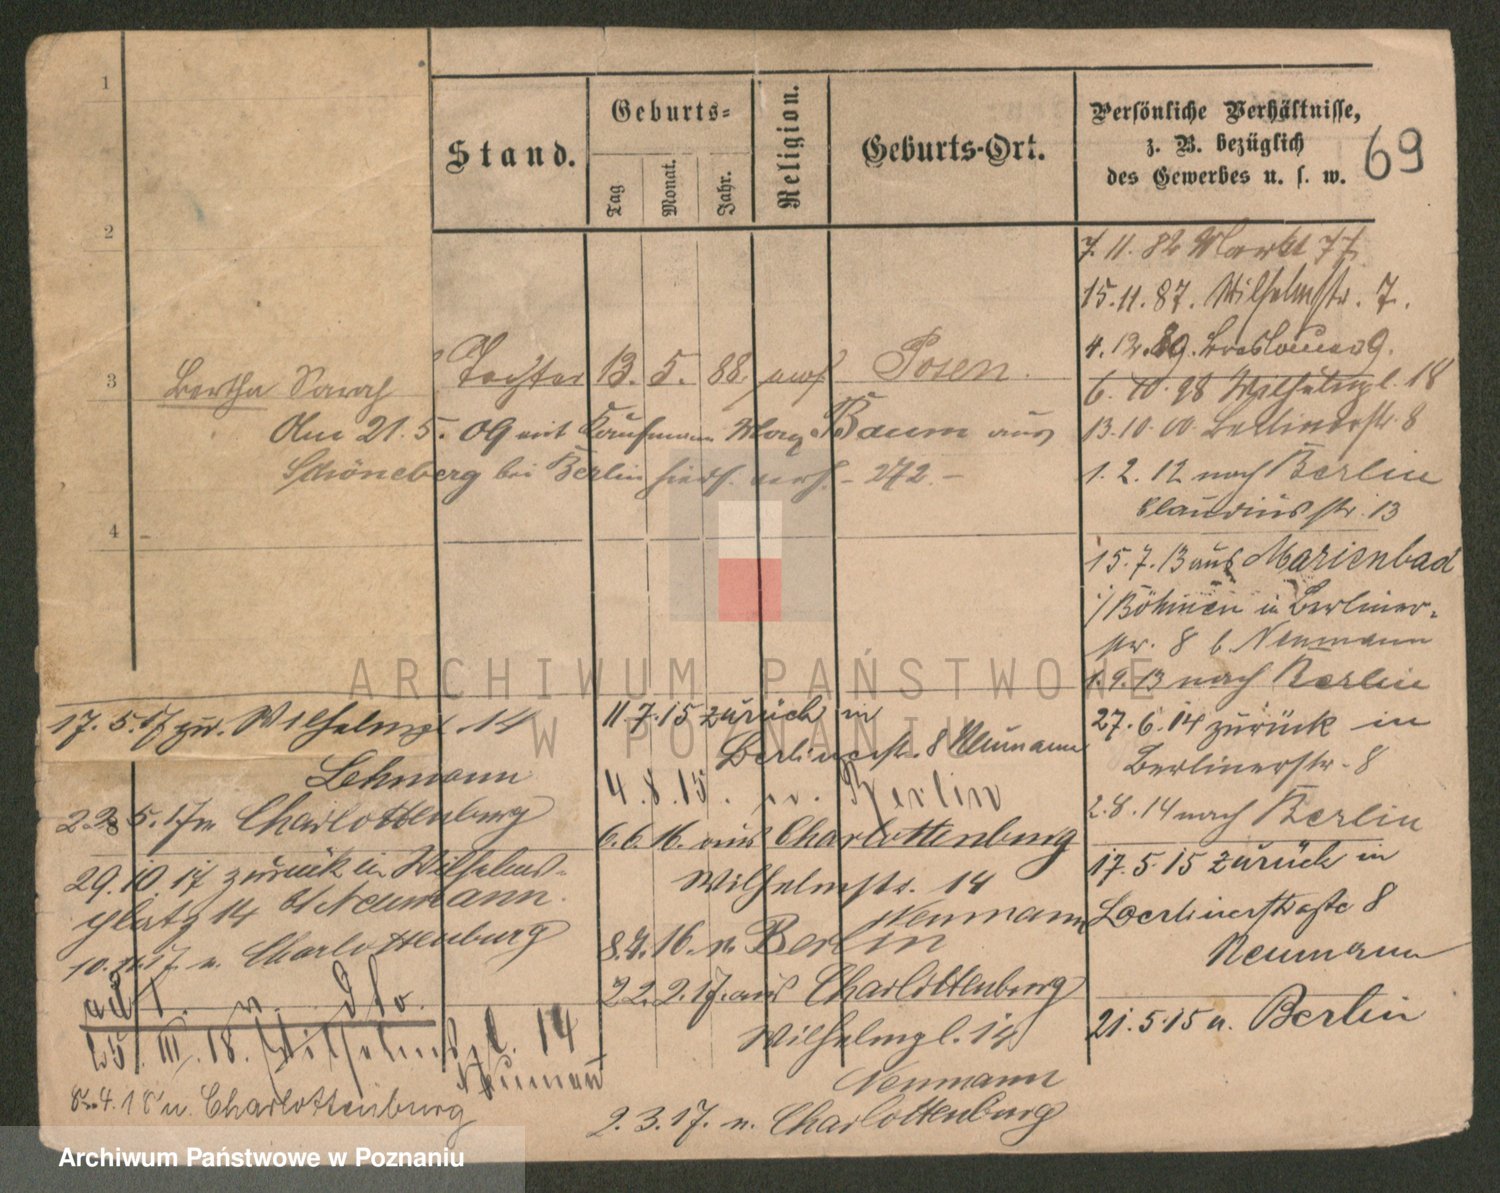 1
2
3
4
Stand.
Geburts-
Tag
Monat.
Jahr.
Religion.
Geburts-Ort.
Persönliche Verhältnisse,
z. B. bezüglich
des Gewerbes u. s. w.
69
Bertha Sarah Tochter 13. 5. 88. mos. Posen.
Am 21. 5. 09 mit Kaufmann Max Baum aus
Schöneberg bei Berlin hies. verh. - 272. -
7. 11. 82 Markt 77
15. 11. 87. Wilhelmstr. 7.
4. 12. 89. 9.
6. 10. 98 Wilhelmpl. 18
13. 10. 00 Berlinerstr. 8
1. 2. 12 nach Berlin
Claudiusstr. 13
15. 7. 13 aus Marienbad
i/ Böhmen in Berliner-
str. 8 b. Neumann
1. 9. 13 nach Berlin
27. 6. 14 zurück in
Berlinerstr. 8
2. 8. 14 nach Berlin
17. 5. 15 zurück in
Berlinerstraße 8
Neumann
21. 5. 15 n. Berlin
11 7. 15 zurück in
Berlinerstr. 8 Neumann
4. 8. 15. n. Berlin
6. 6. 16. aus Charlottenburg
Wilhelmstr. 14
Neumann
8. 7. 16. n. Berlin
22. 2. 17. aus Charlottenburg
Wilhelmpl. 14
Neumann
2. 3. 17. n. Charlottenburg
17. 5. 17 zur. Wilhelmpl. 14
Lehmann
22. 5. 17 n Charlottenburg
29. 10. 17 zurück in Wilhelms-
platz 14 b/ Neumann.
10. 11. 17. n. Charlottenburg
ad 1. n. dto.
25. III. 18. Wilhelmspl. 14
Neumann
8. 4. 18 n. Charlottenburg
ARCHIWUM PAŃSTWOWE
W POZNANIU
Archiwum Państwowe w Poznaniu